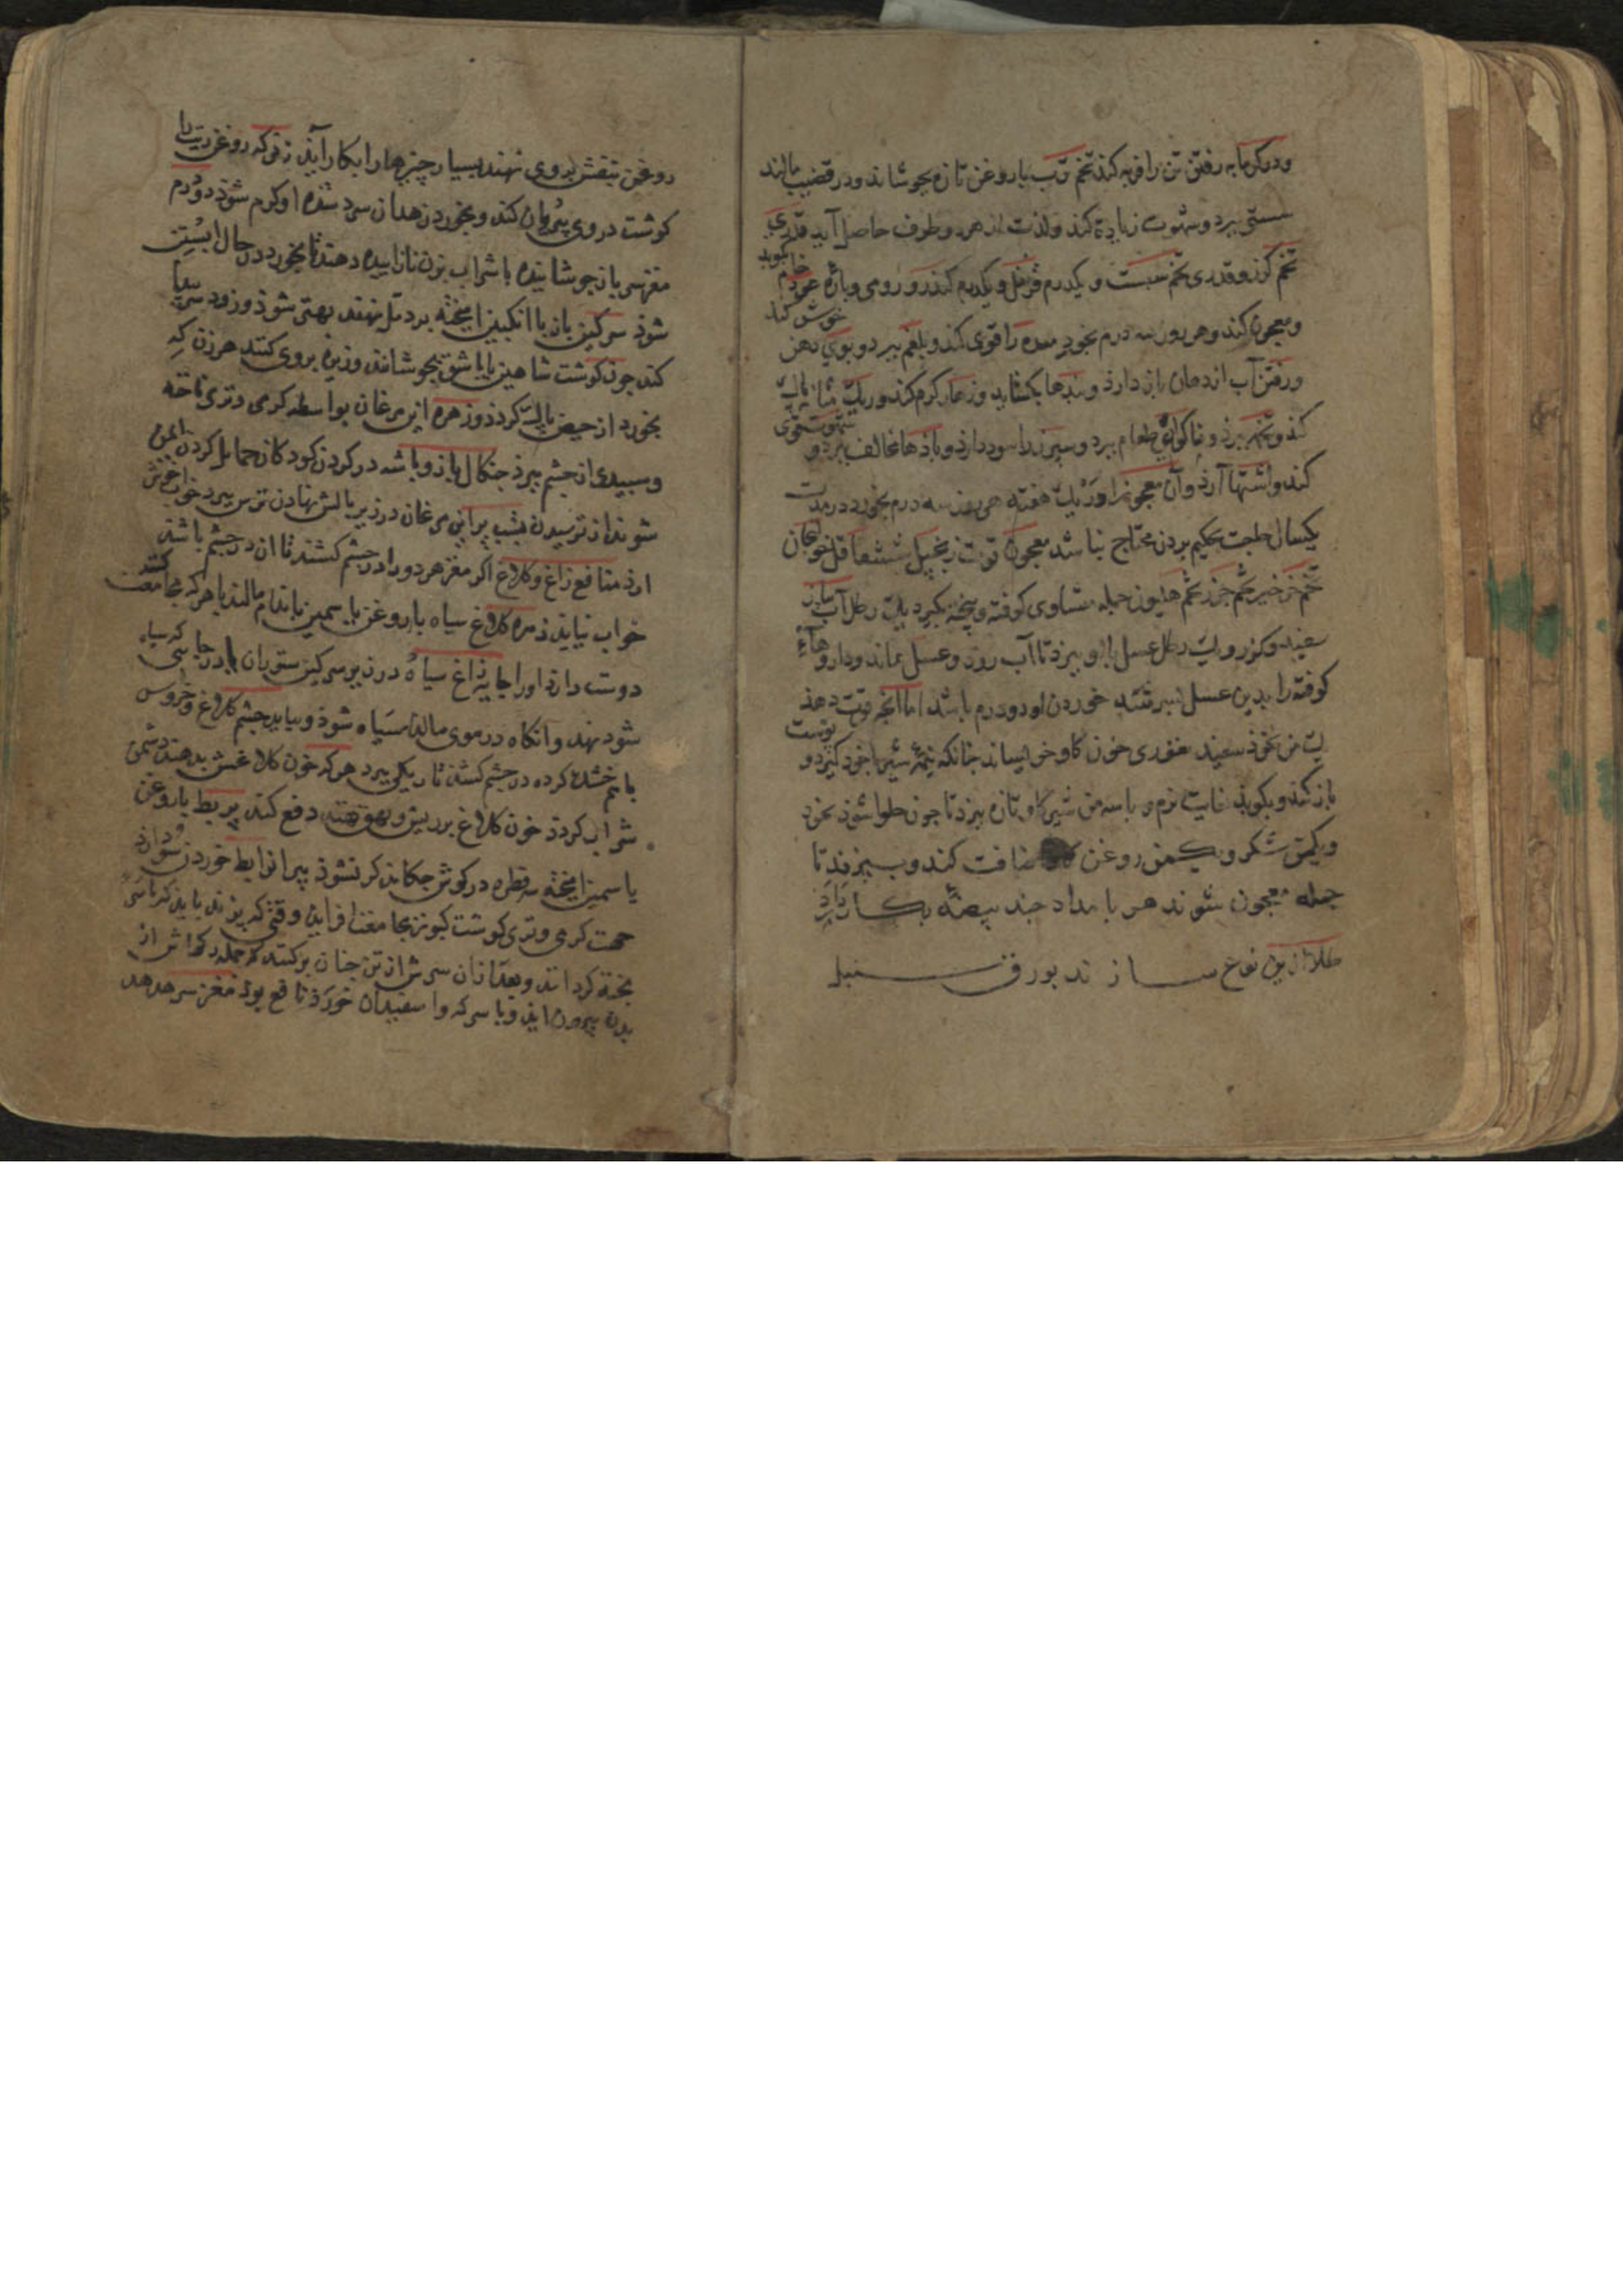 ودر کرمابه رفتن تن را فربه کند تخم ترب با روغن تازه بجوشاند ودر قضیب مالند
سستی ببرد وشهوت زیادة کند ولذت از هر دو طرف حاصل آید قدری
تخم کزر وقدری تخم سبست ویکدرم قرنفل ویکدرم کندر رومی وپاره عود خام بکوبد
ومعجون کند وهر روز سه درم بخورد معده را قوی کند وبلغم ببرد وبوی دهن خوش کند
ورفتن آب از دهان باز دارد وسدها بکشاید وزهار کرم کند وریک مثانه پاک
کند وتخمه ببرد وناکواری طعام ببرد وسپرز را سود دارد وبادها مخالف ببرد و شهوت قوی
کند واشتها آرد وآن معجونرا در یک هفته هر روز سه درم بخورد در مدت
یکسال حاجت بحکیم بردن محتاج نباشد معجون قوت زنجبیل ششقاقل خولجان
تخم جرجیر تخم جزر تخم هلیون جمله متساوی کوفته وبیخته بکیرد یک رطل آب پیاز
سفید وکزر ویک رطل عسل با او بپزد تا آب رود وعسل بماند وداروهاء
کوفته را بدین عسل بسرشتد خوردن او دو درم باشد اما انچه قوت دهد
یک من نخود سفید در خون کاو خوایساند جنانکه همه شیر با خود کیرد و پوست
باز کند وبکوبد غایت نرم وبا سه من شیر کاو تازه بپزد تا جون حلوا شود نخود
ویکمن شکر ویکمن روغن کاو اضافت کند وبپزند تا
جمله معجون شوند هر بامداد جند بیضه بکار دارد
طلا از این نوع سازند بورق سنبل
روغن بنفش بر وی نهند بسیار چیزها را بکار آید زفرکه روغن زیت را
کوشت در وی بریان کند وبخورد زهدان سرد شده او کرم شود دو درم
مغز سر باز جوشانیده با شراب بزن نازاییده دهند تا بخورد در حال ابستن
شود سرکین باز با انکبین امیخته بر دمل نهند بهتر شود وزود سر پیدا
کند جون کوشت شاهین یا باشق بجوشانند وزیره بروی کنند هر زن که
بخورد از حیض پاک کردد وزهره این مرغان بواسطه کرمی وتری ناخنه
وسبیدی از جشم ببرد جنکال باز وباشه در کردن کودکان حمایل کردن ایمن
شوند از ترسیدن بشب پر این مرغان در زیر بالش نهادن ترس ببرد خواب خوش
ارد منافع زاغ وکلاغ اکر مغز هر دو را در جشم کشند تا ان در جشم باشد
خواب نیاید زهره کلاغ سیاه با روغن یاسمین باندام مالند با هر که مجامعت کنند
دوست دارد او را خایه زاغ سیاه در زیر سرکین ستوران یا در جایی که سیاه
شود نهد وانکاه در موی مالند سیاه شود وبیاید جشم کلاغ وخروس
باهم خشک کرده در جشم کشند تاریکی ببرد هر که خون کلاغش بدهند دشمن
شراب کردد خون کلاغ بر ریش وبهق نهند دفع کند پر بط با روغن
یاسمین امیخته سه قطره در کوش جکاند کر نشود پیرانرا بط خوردن سود دارد
جهت کرمی وتری کوشت کبوتر مجامعت افزاید وقتی که بپزند باید که نیم
بخته کردانند وبعد از آن سرش از تن جنان برکنند که جمله رکهاش از
بدن بیرون اید وبا سرکه واسفیدان خورد نافع بود مغز سر هدهد